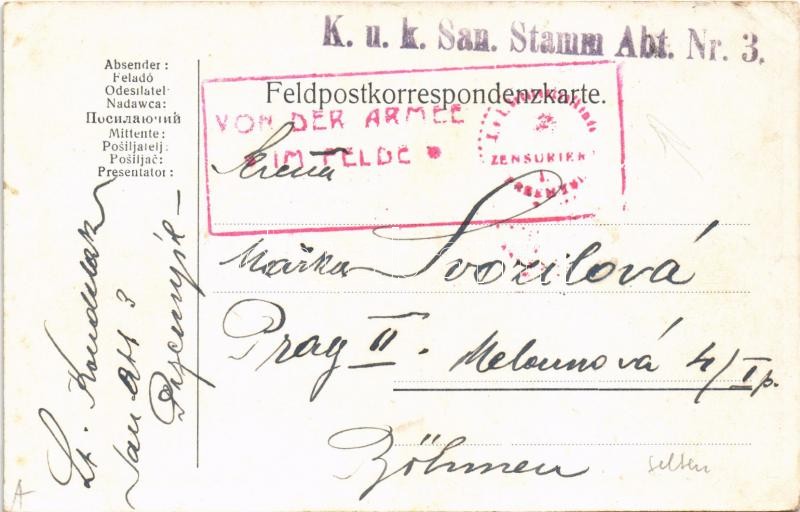 K. u. k. San. Stamm Abt. Nr. 3.
Absender :
Feladó
Odesilatel
Nadawca:
Посилаючий
Mittente:
Pošiljatelj:
Pošiljač:
Presentator:
Feldpostkorrespondenzkarte.
VON DER ARMEE
* IM FELDE *
ZENSURIERT
Slečna
Mařka Svozilová
Prag II. Melounová 4/I p.
Böhmen
Przemyśl
selten
A